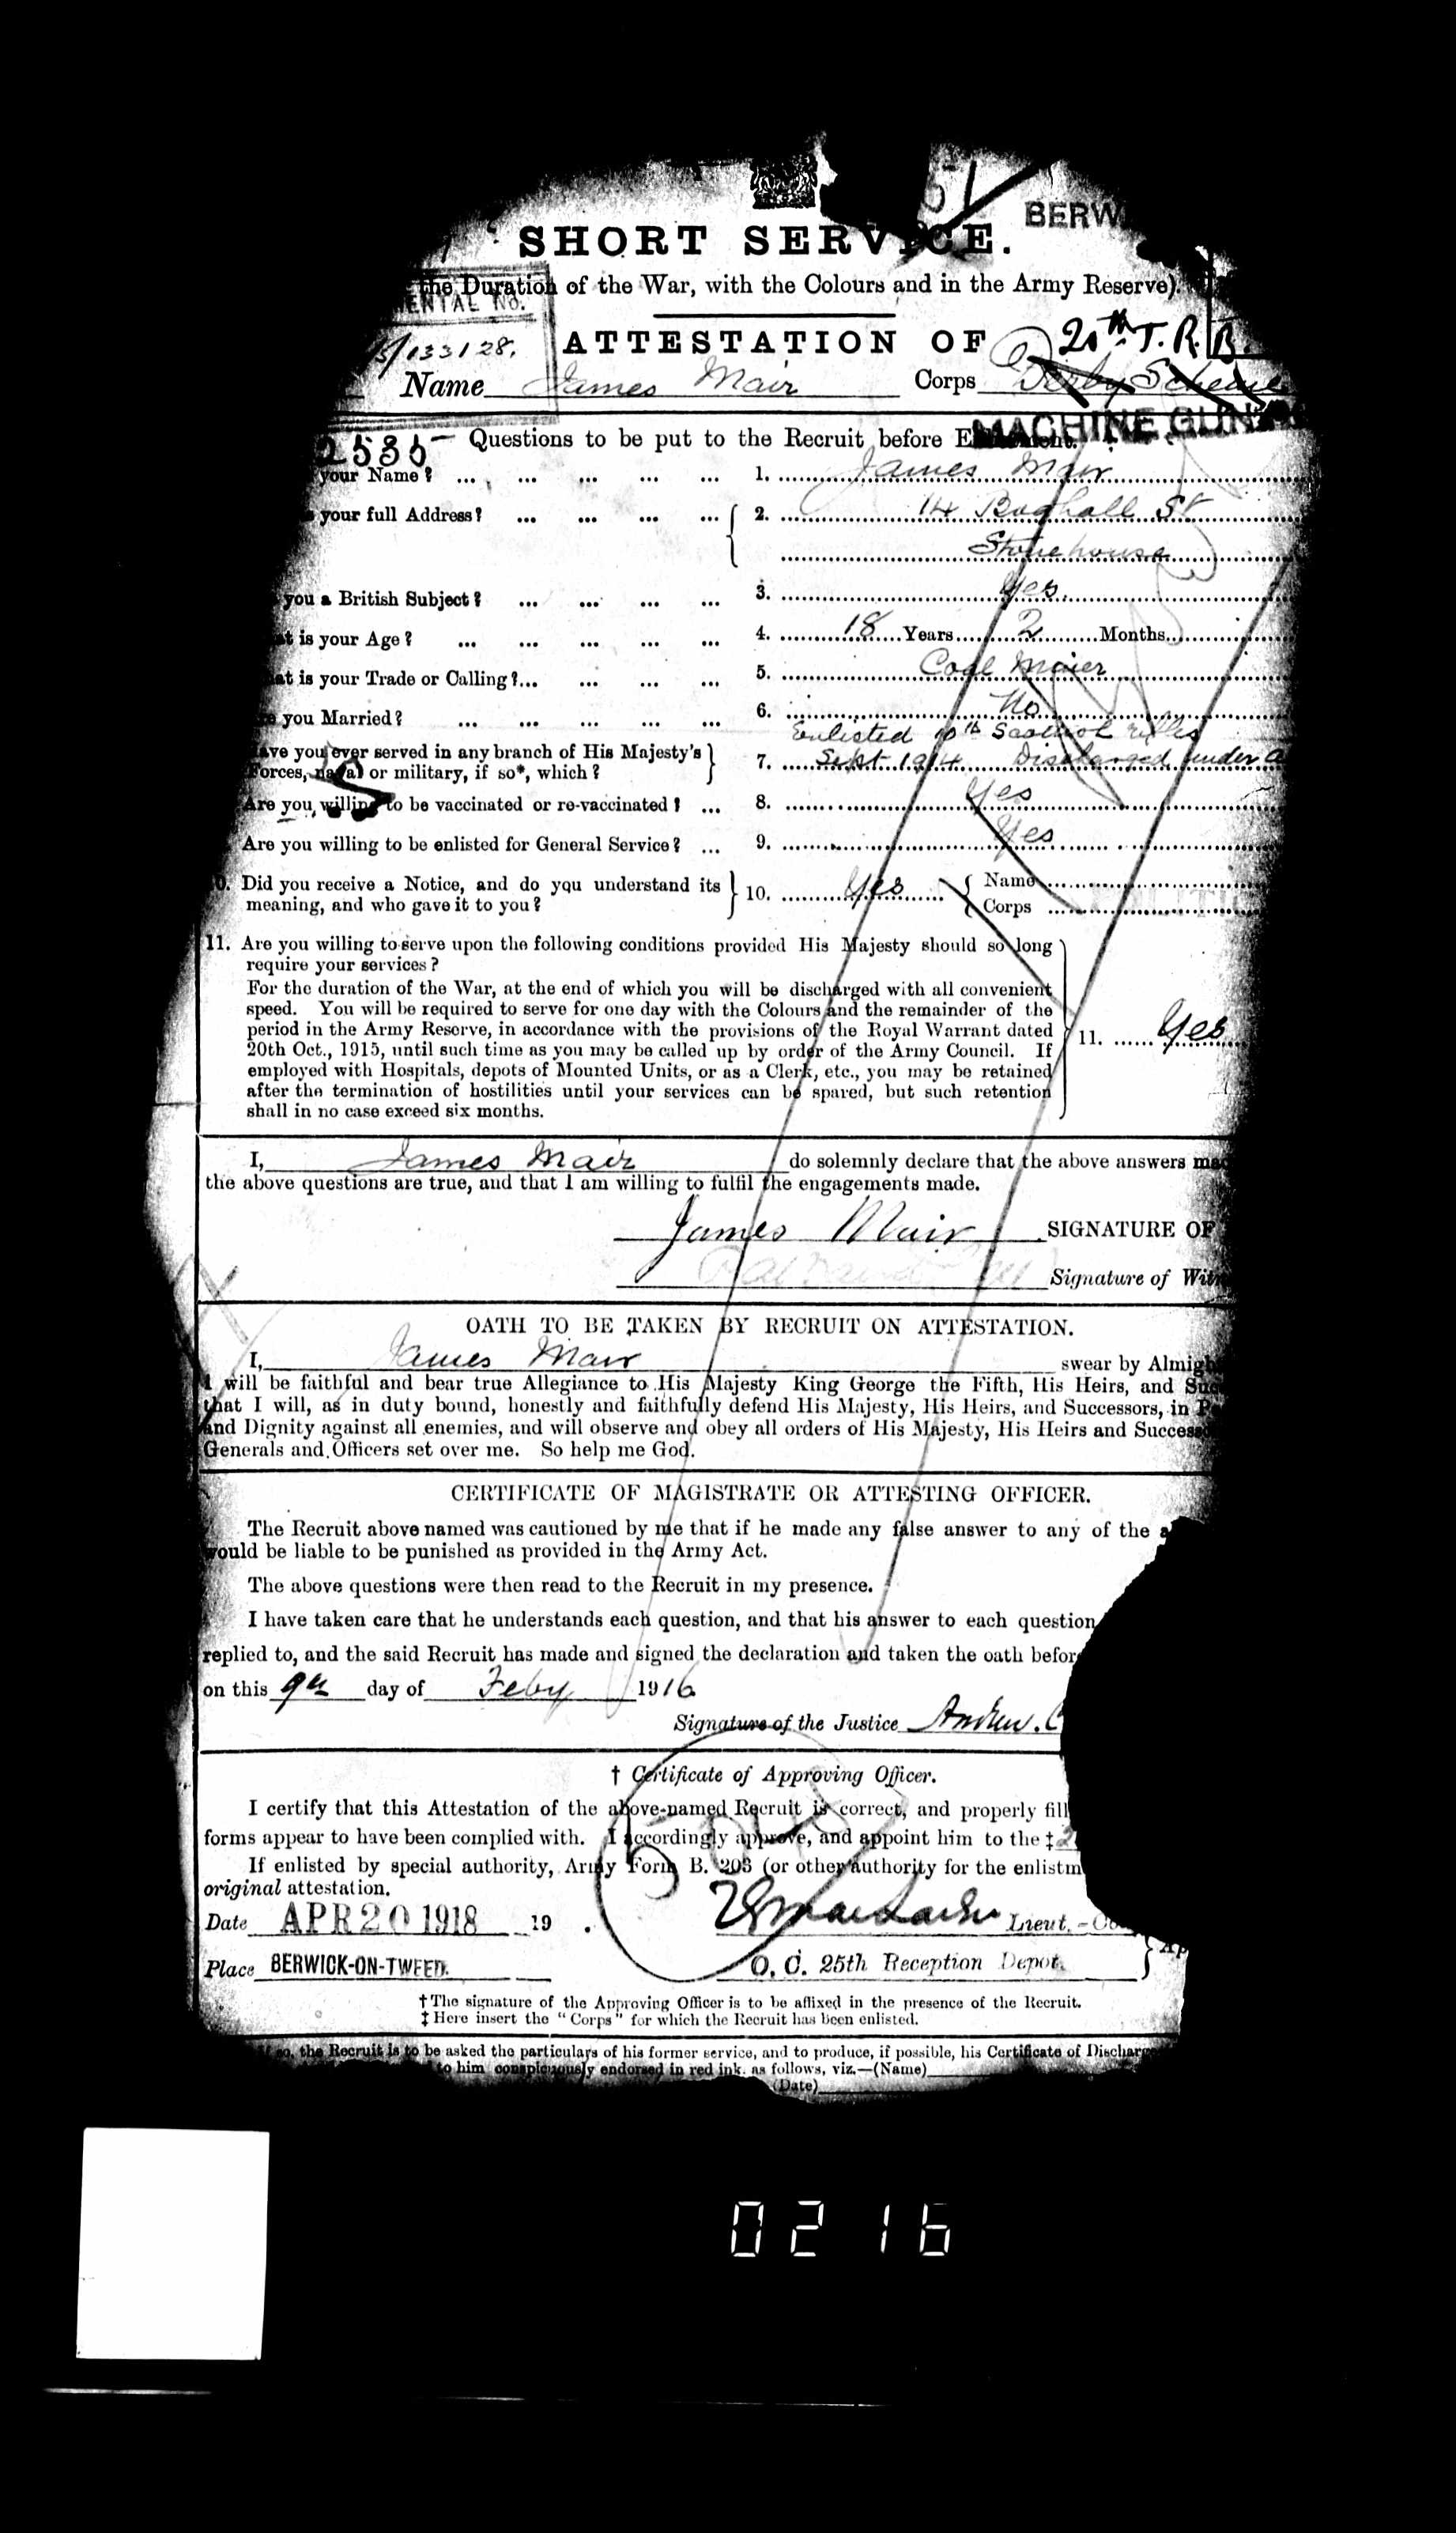 BERW
SHORT SERVICE.
the Duration of the War, with the Colours and in the Army Reserve).
ENTAL No.
/133128.
ATTESTATION OF
20th T.R.B.
Name James Mair Corps Derby Scheme
MACHINE GUN
Questions to be put to the Recruit before
your Name? ... ... ... ... ... 1. James Mair
your full Address? ... ... ... ... 2. 14 Boghall St
Stonehouse
you a British Subject? ... ... ... ... 3. Yes.
is your Age? ... ... ... ... ... 4. 18 Years 2 Months
at is your Trade or Calling?... ... ... ... 5. Coal Miner
you Married? ... ... ... ... ... 6. No
Enlisted 10th Scottish rifles
ave you ever served in any branch of His Majesty's
Forces, naval or military, if so*, which? 7. Sept 1914 Discharged under a
Are you willing to be vaccinated or re-vaccinated? ... 8. Yes
Are you willing to be enlisted for General Service? ... 9. Yes
0. Did you receive a Notice, and do you understand its
meaning, and who gave it to you? 10. Yes { Name
Corps
11. Are you willing to serve upon the following conditions provided His Majesty should so long
require your services?
For the duration of the War, at the end of which you will be discharged with all convenient
speed. You will be required to serve for one day with the Colours and the remainder of the
period in the Army Reserve, in accordance with the provisions of the Royal Warrant dated
20th Oct., 1915, until such time as you may be called up by order of the Army Council. If
employed with Hospitals, depots of Mounted Units, or as a Clerk, etc., you may be retained
after the termination of hostilities until your services can be spared, but such retention
shall in no case exceed six months.
11. Yes
I, James Mair do solemnly declare that the above answers mad
the above questions are true, and that I am willing to fulfil the engagements made.
James Mair SIGNATURE OF
Signature of Witn
OATH TO BE TAKEN BY RECRUIT ON ATTESTATION.
I, James Mair swear by Almigh
I will be faithful and bear true Allegiance to His Majesty King George the Fifth, His Heirs, and Suc
that I will, as in duty bound, honestly and faithfully defend His Majesty, His Heirs, and Successors, in P
and Dignity against all enemies, and will observe and obey all orders of His Majesty, His Heirs and Success
Generals and Officers set over me. So help me God.
CERTIFICATE OF MAGISTRATE OR ATTESTING OFFICER.
The Recruit above named was cautioned by me that if he made any false answer to any of the a
would be liable to be punished as provided in the Army Act.
The above questions were then read to the Recruit in my presence.
I have taken care that he understands each question, and that his answer to each question
replied to, and the said Recruit has made and signed the declaration and taken the oath before
on this 9th day of Feby 1916
Signature of the Justice Andrew. C
† Certificate of Approving Officer.
I certify that this Attestation of the above-named Recruit is correct, and properly fill
forms appear to have been complied with. I accordingly approve, and appoint him to the ‡2
If enlisted by special authority, Army Form B. 203 (or other authority for the enlistm
original attestation.
Date APR 20 1918 19 . Lieut.-Co
Place BERWICK-ON-TWEED. O. C. 25th Reception Depot. } Ap
† The signature of the Approving Officer is to be affixed in the presence of the Recruit.
‡ Here insert the "Corps" for which the Recruit has been enlisted.
so, the Recruit is to be asked the particulars of his former service, and to produce, if possible, his Certificate of Discharge
to him conspicuously endorsed in red ink, as follows, viz.—(Name)
(Date)
0216